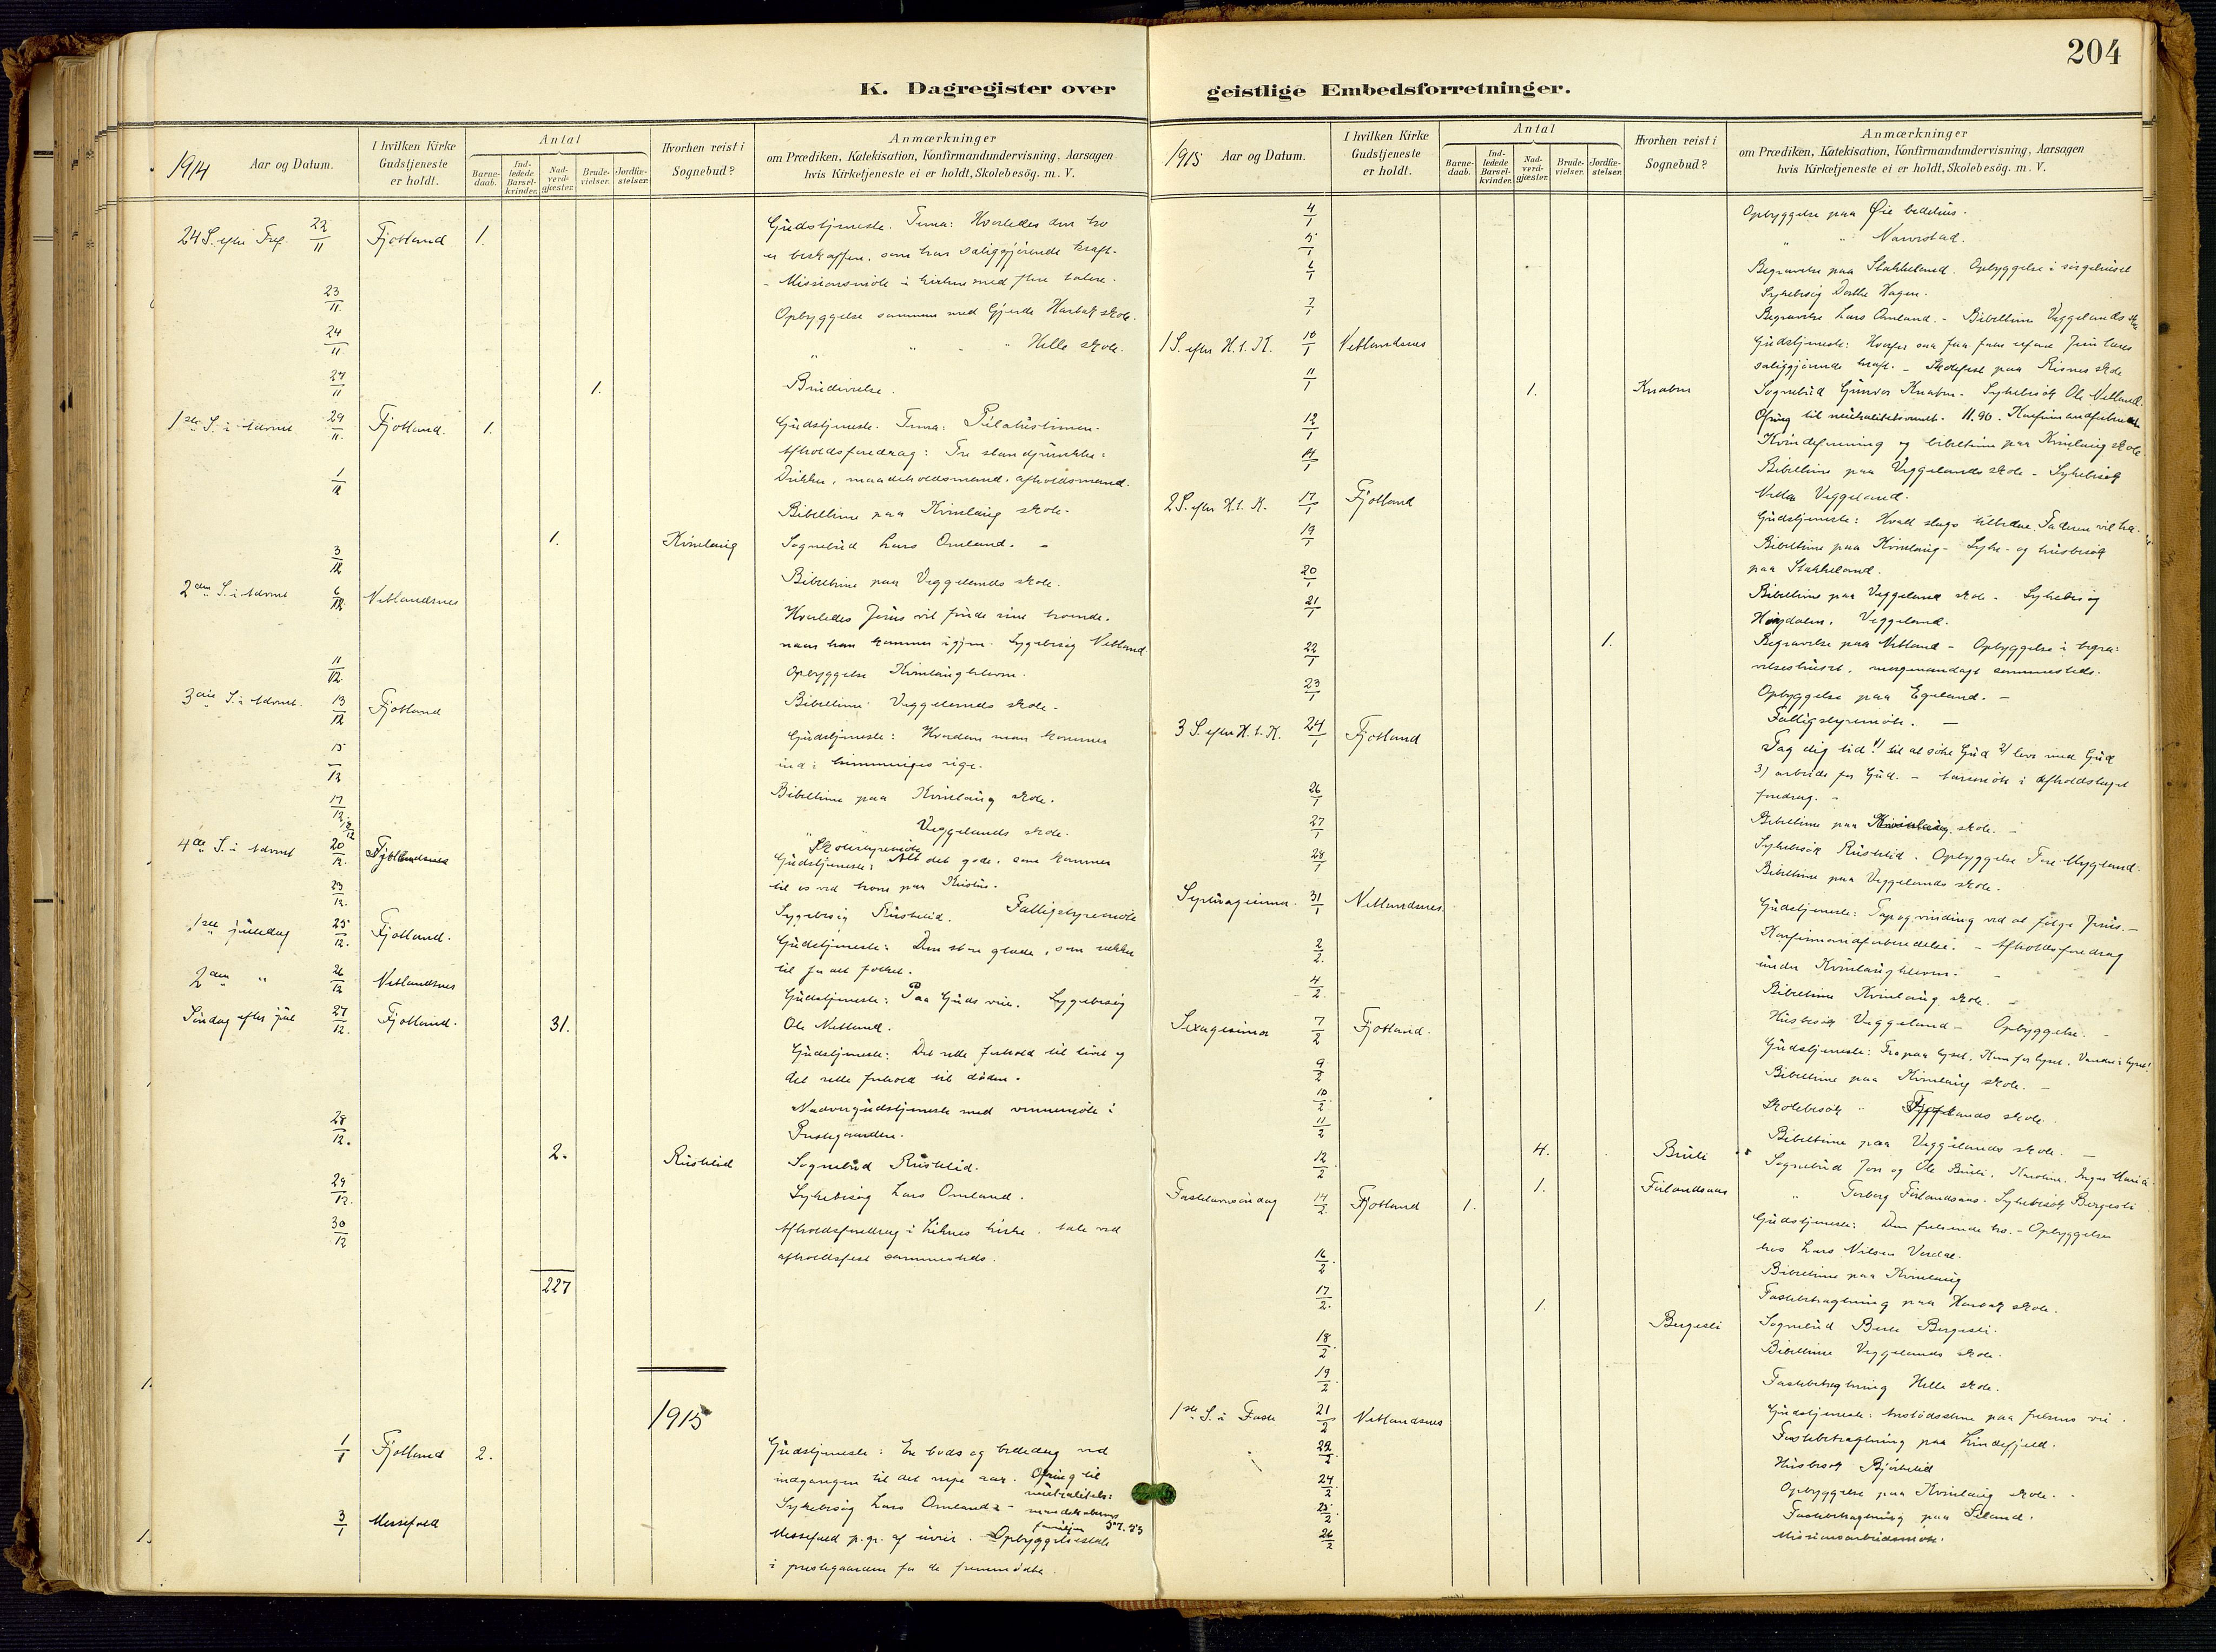 204
K. Dagregister over geistlige Embedsforretninger.
1914 Aar og Datum.
I hvilken Kirke Gudstjeneste er holdt.
Antal
Barne-daab.
Ind-ledede Barsel-kvinder.
Nad-verd-gjæster.
Brude-vielser.
Jordfæ-stelser.
Hvorhen reist i Sognebud?
Anmærkninger
om Prædiken, Katekisation, Konfirmandundervisning, Aarsagen
hvis Kirketjeneste ei er holdt, Skolebesög. m. V.
24 S. efter Tref. 22/11 Fjotland 1. Gudstjeneste. Tema: Hvorledes den tro
er beskaffen, som har saliggjørende kraft.
- Missionsmöte i kirken med flere talere.
23/11 Opbyggelse sammen med Gjerde Harbak skole.
24/11 " " " Helle skole.
27/11 1. Brudevielse.
1ste S. i Advent 29/11. Fjotland. 1. Gudstjeneste. Tema:
Afholdsforedrag: Tre standpunkter:
Drikker, maadeholdsmand, afholdsmand.
1/12 Bibeltime paa Kvinlaug skole.
1. Kvinlaug Sognebud Lars Omland.
3/12 Bibeltime paa Veggelands skole.
2den S. i Advent 6/12. Netlandsnes Hvorledes Jesus vil finde sine troende,
naar han kommer igjen. Sygebesög Netland
11/12. Opbyggelse Kvinlaugheien.
3die S. i Advent. 13/12 Fjotland Bibeltime Veggelands skole.
Gudstjeneste: Hvordan man kommer
ind i himmeriges rige.
15/12 Bibeltime paa Kvinlaug skole.
17/12. " Veggelands skole.
18/12 Skolestyremöte
4de S. i Advent 20/12. Gudstjeneste: Alt det gode, som kommer
til os ved troen paa Kristus.
23/12. Sygebesög Rusklid. Fattigstyremöte
1ste juledag 25/12. Fjotland. Gudstjeneste: Den store glæde, som rækker
til for alt folket.
2den " 26/12 Netlandsnes Gudstjeneste: Paa Guds veie. Sygebesög
Ole Netland.
Söndag efter jul 27/12. Fjotland. 31. Gudstjeneste: Det rette forhold til livet og
det rette forhold til döden.
Nadvergudstjeneste med vennemöte i
Prestegaarden.
28/12. 2. Rusklid Sognebud Rusklid.
29/12. Sykebesög Lars Omland.
30/12 Afholdsforedrag i Liknes kirke. tale ved
afholdsfest sammesteds.
227
1915
1/1 Fjotland 2. Gudstjeneste: En bods og bededag ved
indgangen til det nye aar. Ofring til
Sykebesög Lars Omland - nøitralitets-
mandskabernes
familjer 37.53
3/1 Messefald Messefald p.gr. af uveir. Opbyggelsestale
i prestegaarden for de fremmödte.
1915 Aar og Datum.
I hvilken Kirke Gudstjeneste er holdt.
Antal
Barne-daab.
Ind-ledede Barsel-kvinder.
Nad-verd-gjæster.
Brude-vielser.
Jordfæ-stelser.
Hvorhen reist i Sognebud?
Anmærkninger
om Prædiken, Katekisation, Konfirmandundervisning, Aarsagen
hvis Kirketjeneste ei er holdt, Skolebesög. m. V.
4/1 Opbyggelse paa Øie bedehus.
5/1 " "
6/1 Begravelse paa Stakkeland. Opbyggelse i sörgehuset
Sykebesög Dorthe Hagen.
7/1 Begravelse Lars Omland. - Bibeltime Veggelands skole
1 S. efter H.t.K. 10/1 Netlandsnes Gudstjeneste: Hvorfor saa faa faar erfare Jesu læres
saliggjørende kraft. - Skolefest paa Risnes skole
11/1 1. Knaben Sognebud Gunvor Knaben. Sykebesök Ole Netland.
Ofring til nøitralitetsvernet. 11.90. Konfirmandforberedelse
12/1 Kvindeforening og bibeltime paa Kvinlaug skole.
14/1 Bibeltime paa Veggelands skole - Sykebesök
Veggeland.
2 S. efter H.t.K. 17/1 Fjotland Gudstjeneste: Hvad slags tilbedere Faderen vil ha.
19/1 Bibeltime paa Kvinlaug - Syke- og husbesök
paa Stakkeland.
20/1 Bibeltime paa Veggeland skole. Sykebesög
21/1 Veggeland.
22/1 1. Begravelse paa Netland - Opbyggelse i begra-
velseshuset, sammesteds.
23/1 Opbyggelse paa Egeland. -
Fattigstyremöte. -
3 S. efter H.t.K. 24/1 Fjotland Tag dig tid! 1) til at söke Gud 2) leve med Gud
3) arbeide for Gud. - Aarsmöte i Afholdslaget
foredrag. -
26/1 Bibeltime paa Kvinlaug skole. -
27/1 Sykebesök Rusklid. Opbyggelse
28/1 Bibeltime paa Veggelands skole.
Septuagesima. 31/1 Netlandsnes. Gudstjeneste: Tap og vinding ved at følge Jesus. -
Konfirmandforberedelse. - Afholdsforedrag
under Kvinlaugheien.
2/2. Bibeltime Kvinlaug skole. -
4/2 Husbesök Veggeland - Opbyggelse. -
Sexagesima 7/2 Fjotland. Gudstjeneste: Tro paa lyset. Kom for lyset. Vandre i lyset!
9/2 Bibeltime paa Kvinlaug skole. -
10/2 Skolebesök " skole.
11/2 Bibeltime paa Veggelands skole. -
12/2 4. Buli Sognebud Jon og Ole Buli, Karoline, Inger Maria
1. Førlandsaas " Førlandsaas. Sykebesök Bergesli
Fastelavnssöndag 14/2. Fjotland 1. Gudstjeneste: Den frelsende tro. - Opbyggelse
hos Lars Nilsen
16/2. Bibeltime paa Kvinlaug
17/2. Fastebetragtning paa Harbak skole.
1. Bergesli Sognebud Bergesli.
18/2. Bibeltime Veggelands skole.
19/2. Fastebetragtning Helle skole.
1ste S. i Faste 21/2 Netlandsnes Gudstjeneste: Anstödsstene paa frelsens vei.
22/2. Fastebetragtning paa Lindefjeld.
Husbesök
24/2. Opbyggelse paa Kvinlaug skole.
25/2. Fastebetragtning paa
26/2 Missionsarbeidsmöte.